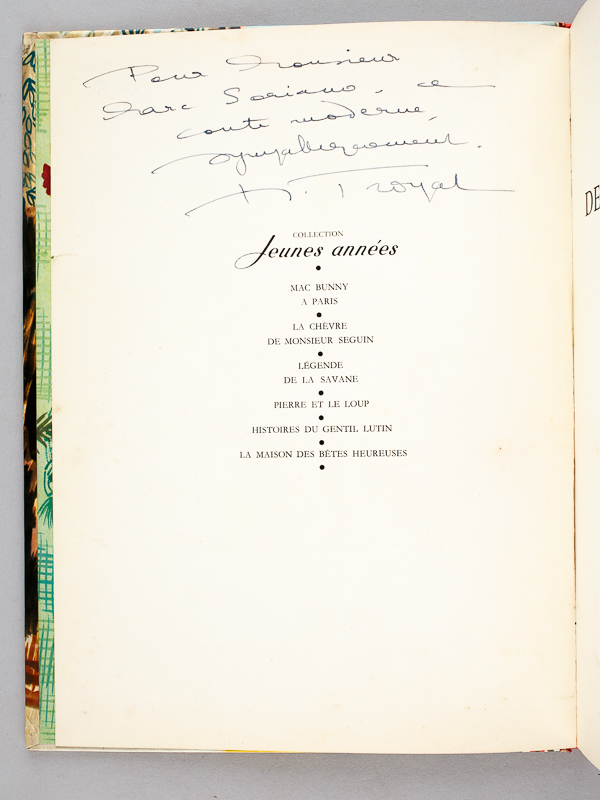 Pour Monsieur
Marc Soriano, ce
conte moderne,
sympathiquement.
Troyat
COLLECTION
Jeunes années
MAC BUNNY
A PARIS
LA CHÈVRE
DE MONSIEUR SEGUIN
LÉGENDE
DE LA SAVANE
PIERRE ET LE LOUP
HISTOIRES DU GENTIL LUTIN
LA MAISON DES BÊTES HEUREUSES
DE